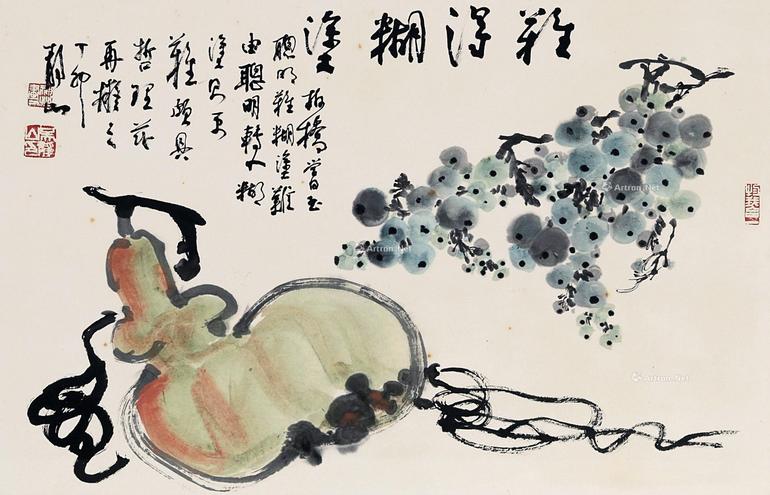 難得糊塗
板橋嘗
聰明難糊塗難
由聰明轉入糊
塗更
難頗具
哲理茲
再擬之
丁卯
靜山
Artron.Net
Artron.Net
Artron.Net